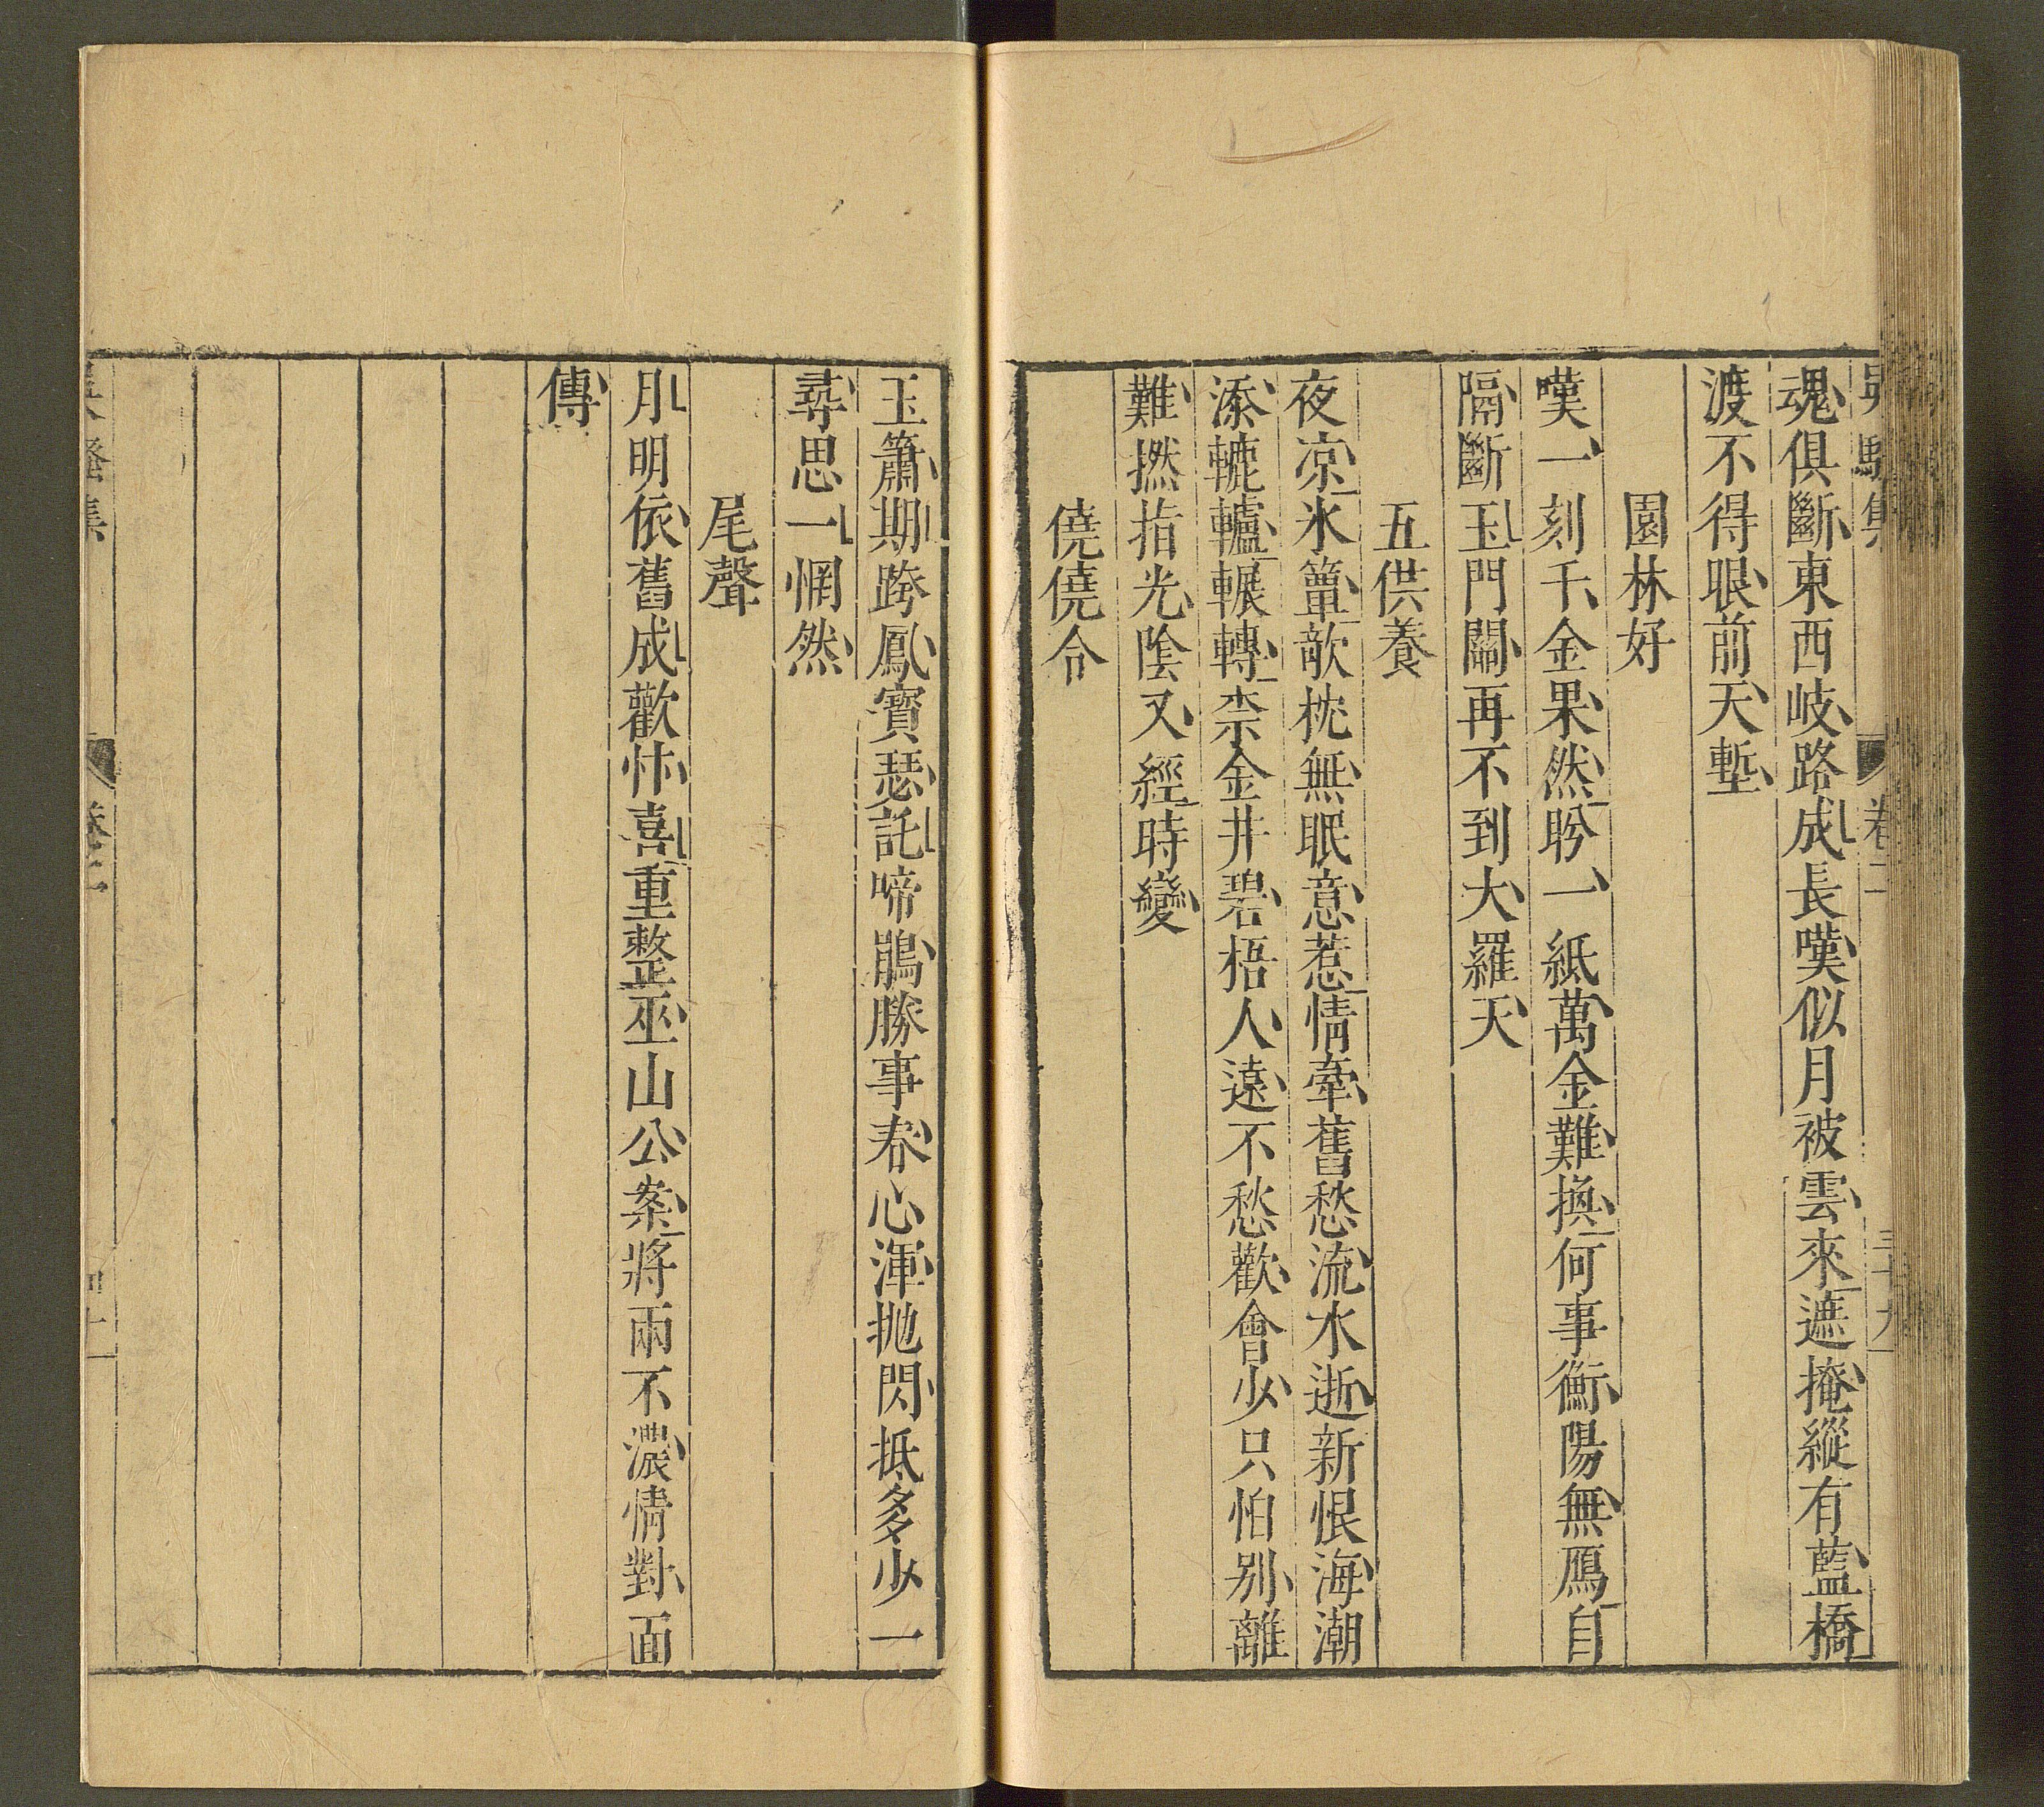 吳騷集 卷二 三十九
魂俱斷東西岐路成長嘆似月被雲來遮掩縱有藍橋
渡不得眼前天塹
園林好
嘆一刻千金果然盼一紙萬金難換何事衡陽無鴈自
隔斷玉門關再不到大羅天
五供養
夜凉氷簟欹枕無眠意惹情牽舊愁流水逝新恨海潮
添轆轤輾轉柰金井碧梧人遠不愁歡會少只怕別離
難撚指光陰又經時變
僥僥令
玉簫期跨鳳寶瑟託啼鵑勝事春心渾抛閃抵多少一
尋思一惘然
尾聲
月明依舊成歡忭喜重整巫山公案將兩下濃情對面
傳
吳騷集 卷二